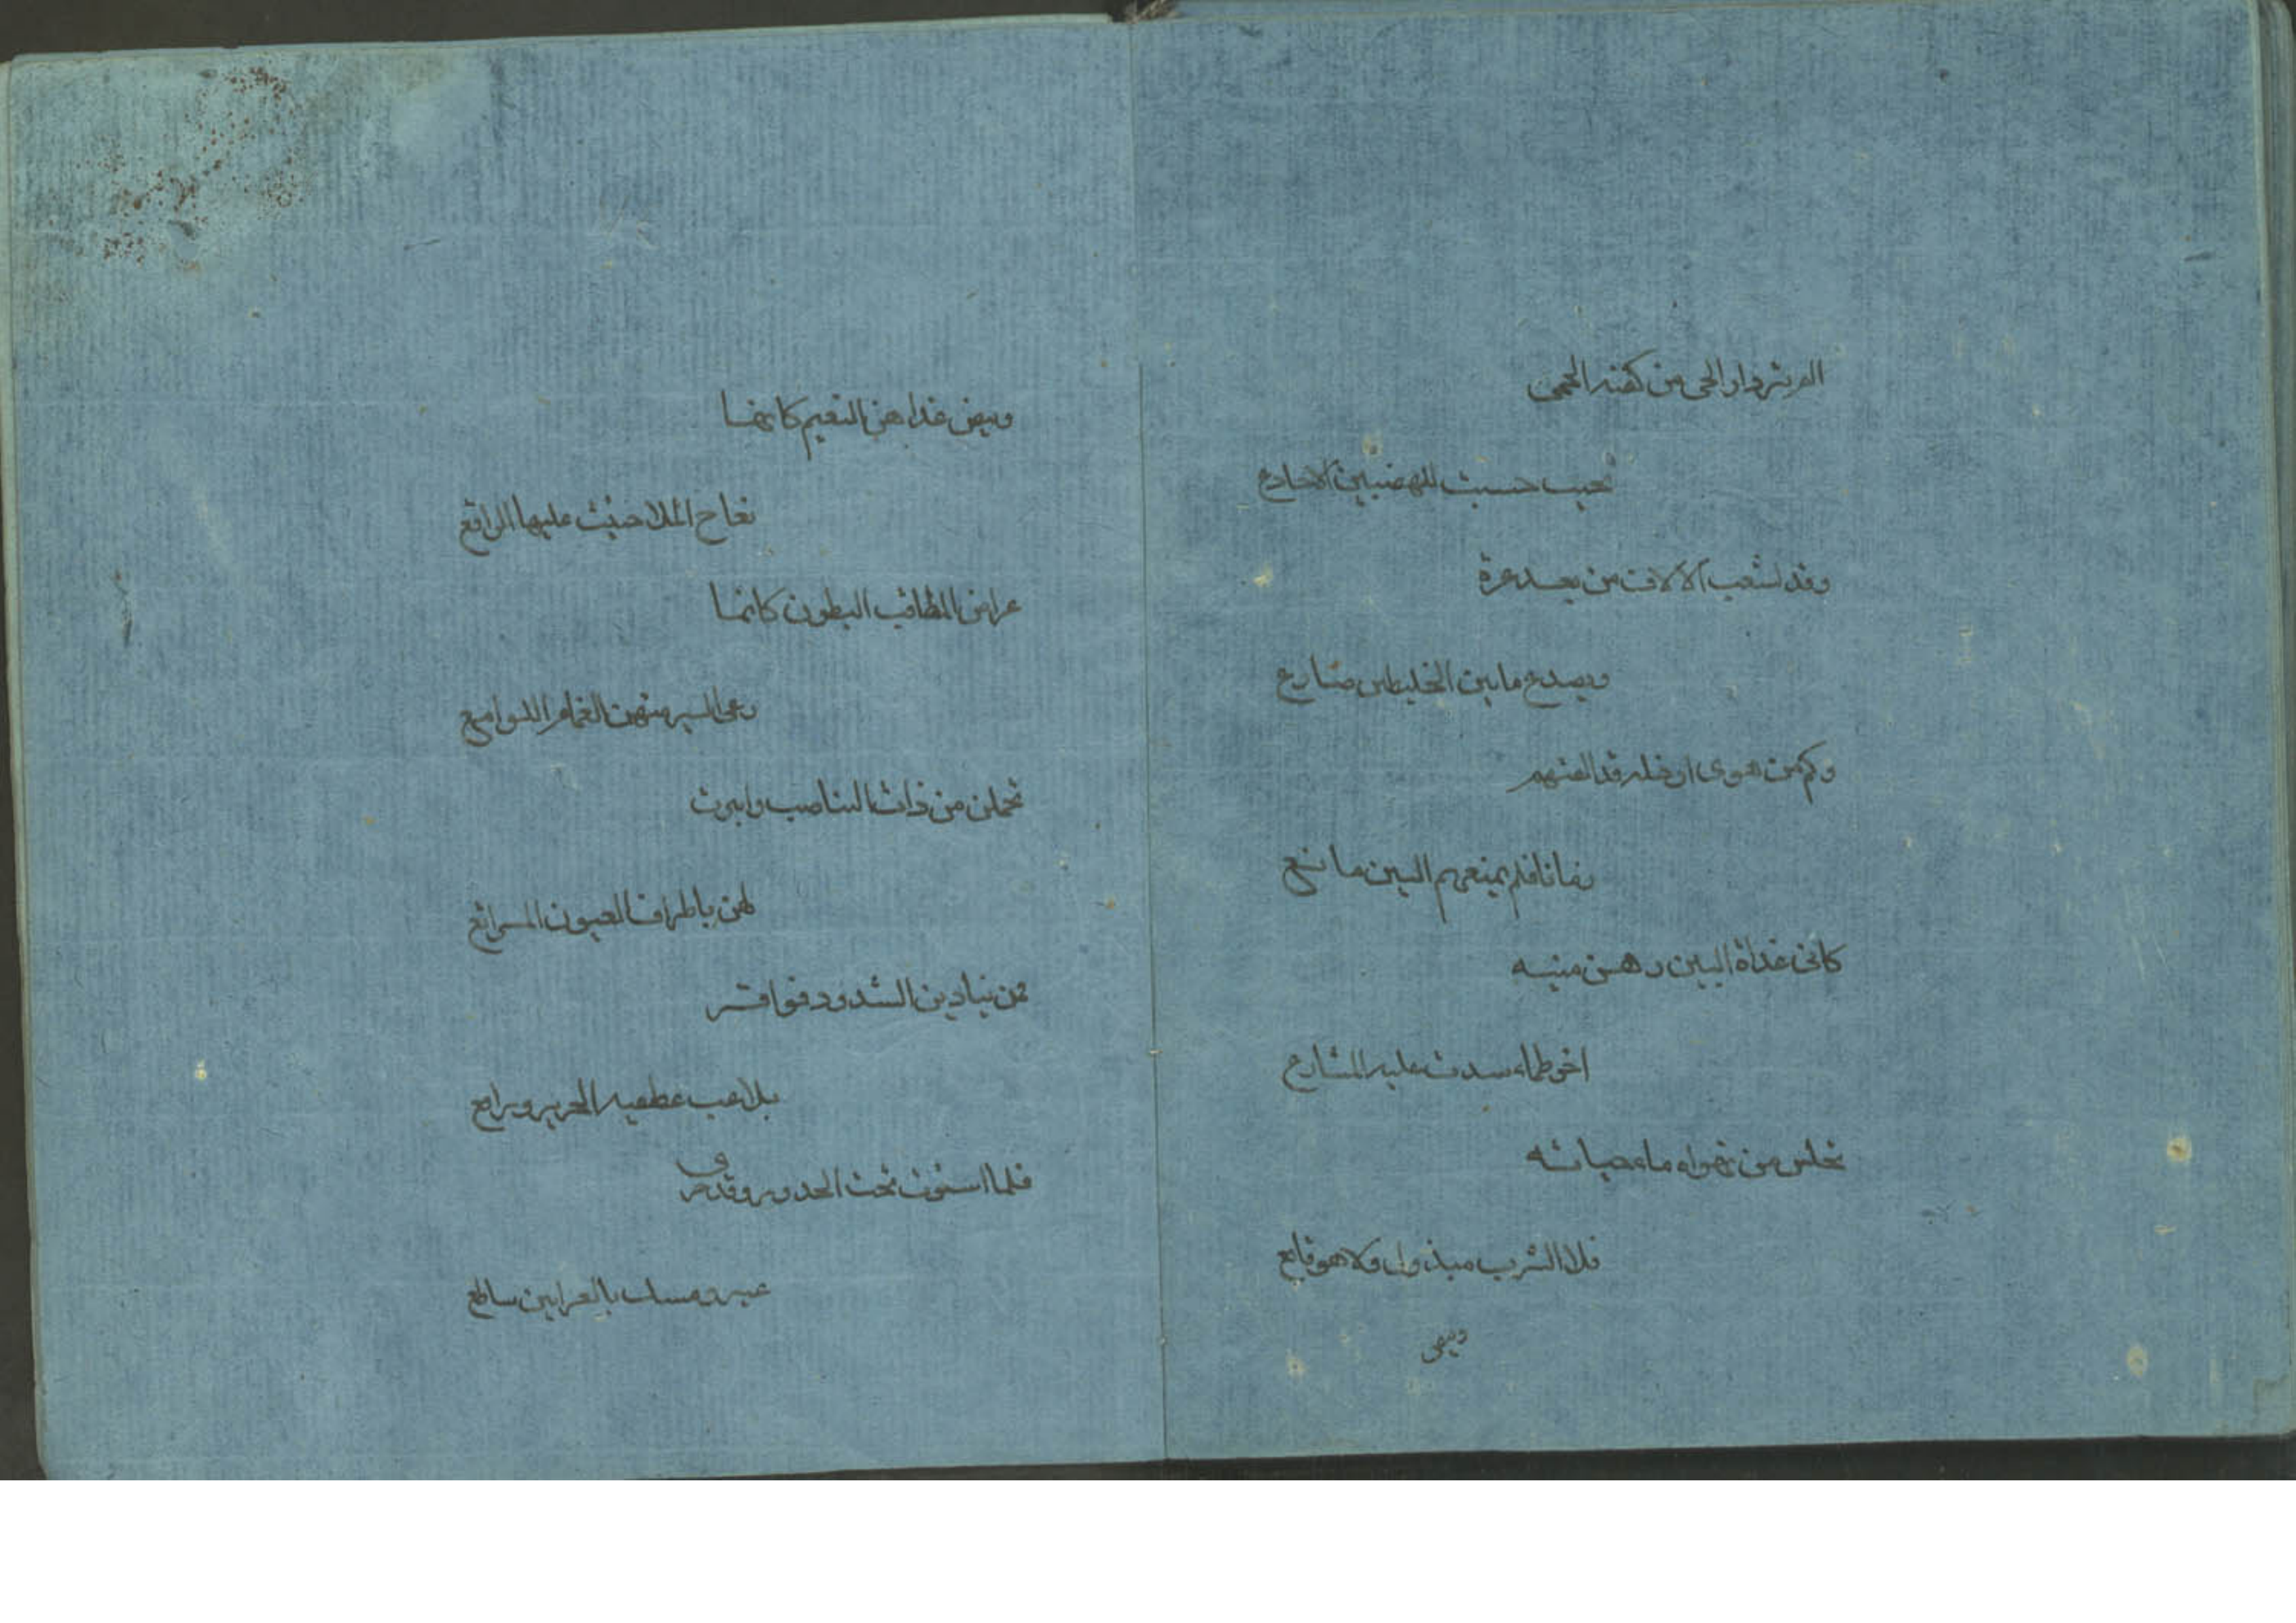 الم تر دار الحي من كفته الحمى
تحيب حسبت للهضبين الاجارع
وقد تشعب الالاف من بعد عزة
ويصدع ما بين الخليطين صارع
وكم من هوى او خله قد الفتهم
زمانا فلم يمنعهم البين مانع
كانى غداة البين رهن منيه
اخو ظماء سدت عليه المشارع
تخلس من تهواه ماء حياته
فلا الشرب مبذول ولا هو قانع
وبيض
وبيض غداهن النعيم كانها
نعاج الملا حيثت عليها البراقع
عراض المطا قب البطون كانما
رعى السير منهن الغمام اللوامع
تحملن من ذات التناصب وانبرت
لهن باطراف العيون المدامع
فمن بنادين الشدود فواقر
يلاعب عطفيه الحرير ورامع
فلما استوت تحت الخدور وقد جرى
عبير ومسك بالعرانين ساطع